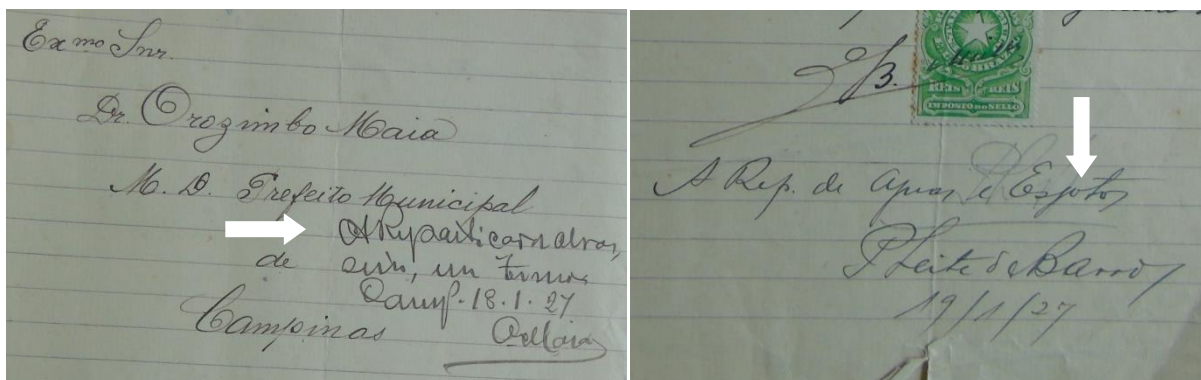 Exmo Snr.
Dr. Orozimbo Maia
M. D. Prefeito Municipal
A Repartição de Obras,
de
em termos
Camp. 18.1.27
Campinas
OMaia
B.
REIS REIS
IMPOSTO DO SELLO
A Rep. de Aguas e Esgotos
P Leite de Barros
19/1/27